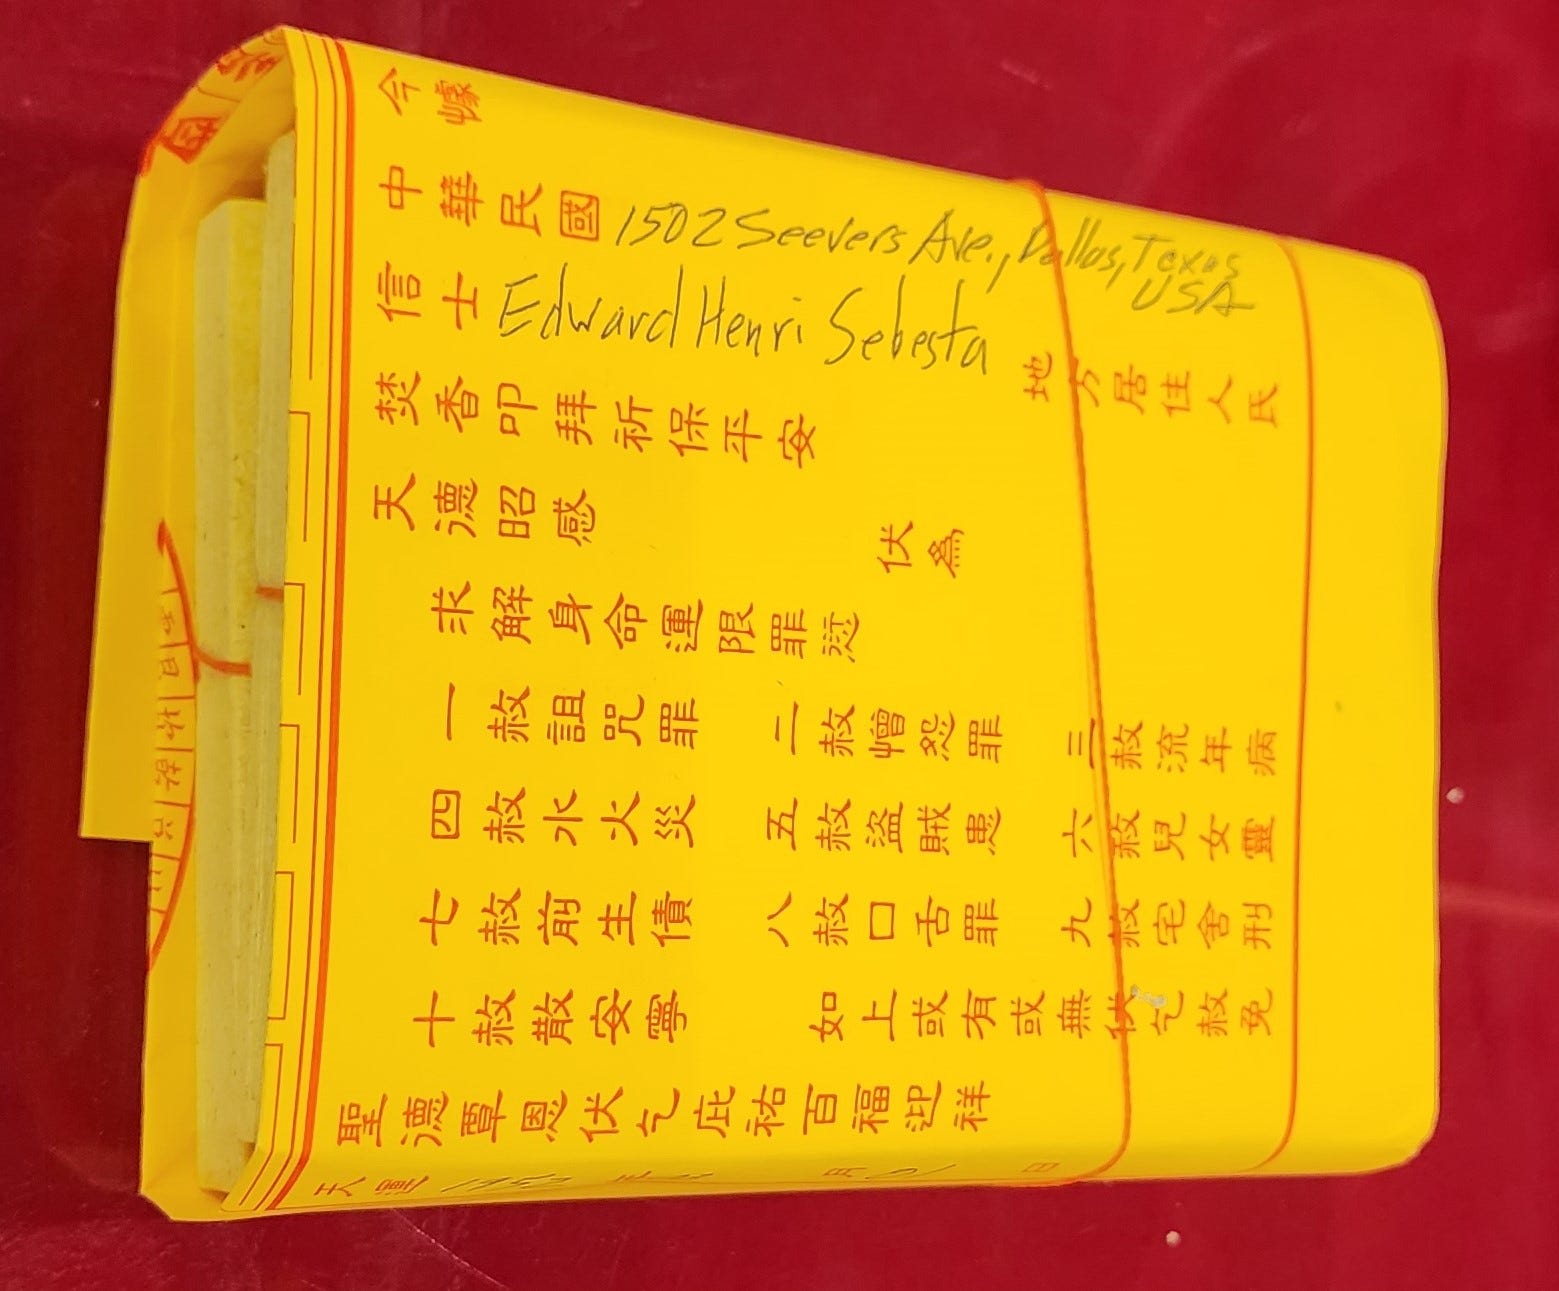 今據
中華民國 1502 Seevers Ave., Dallas, Texas
USA
信士 Edward Henri Sebesta 地方居住人民
焚香叩拜祈保平安
天德昭感 伏為
求解身命運限罪愆
一赦詛咒罪 二赦憎怨罪 三赦流年病
四赦水火災 五赦盜賊患 六赦兒女靈
七赦前生債 八赦口舌罪 九赦宅舍刑
十赦散安寧 如上或有或無伏乞赦免
聖德覃恩伏乞庇祐百福迎祥
天運 月 日